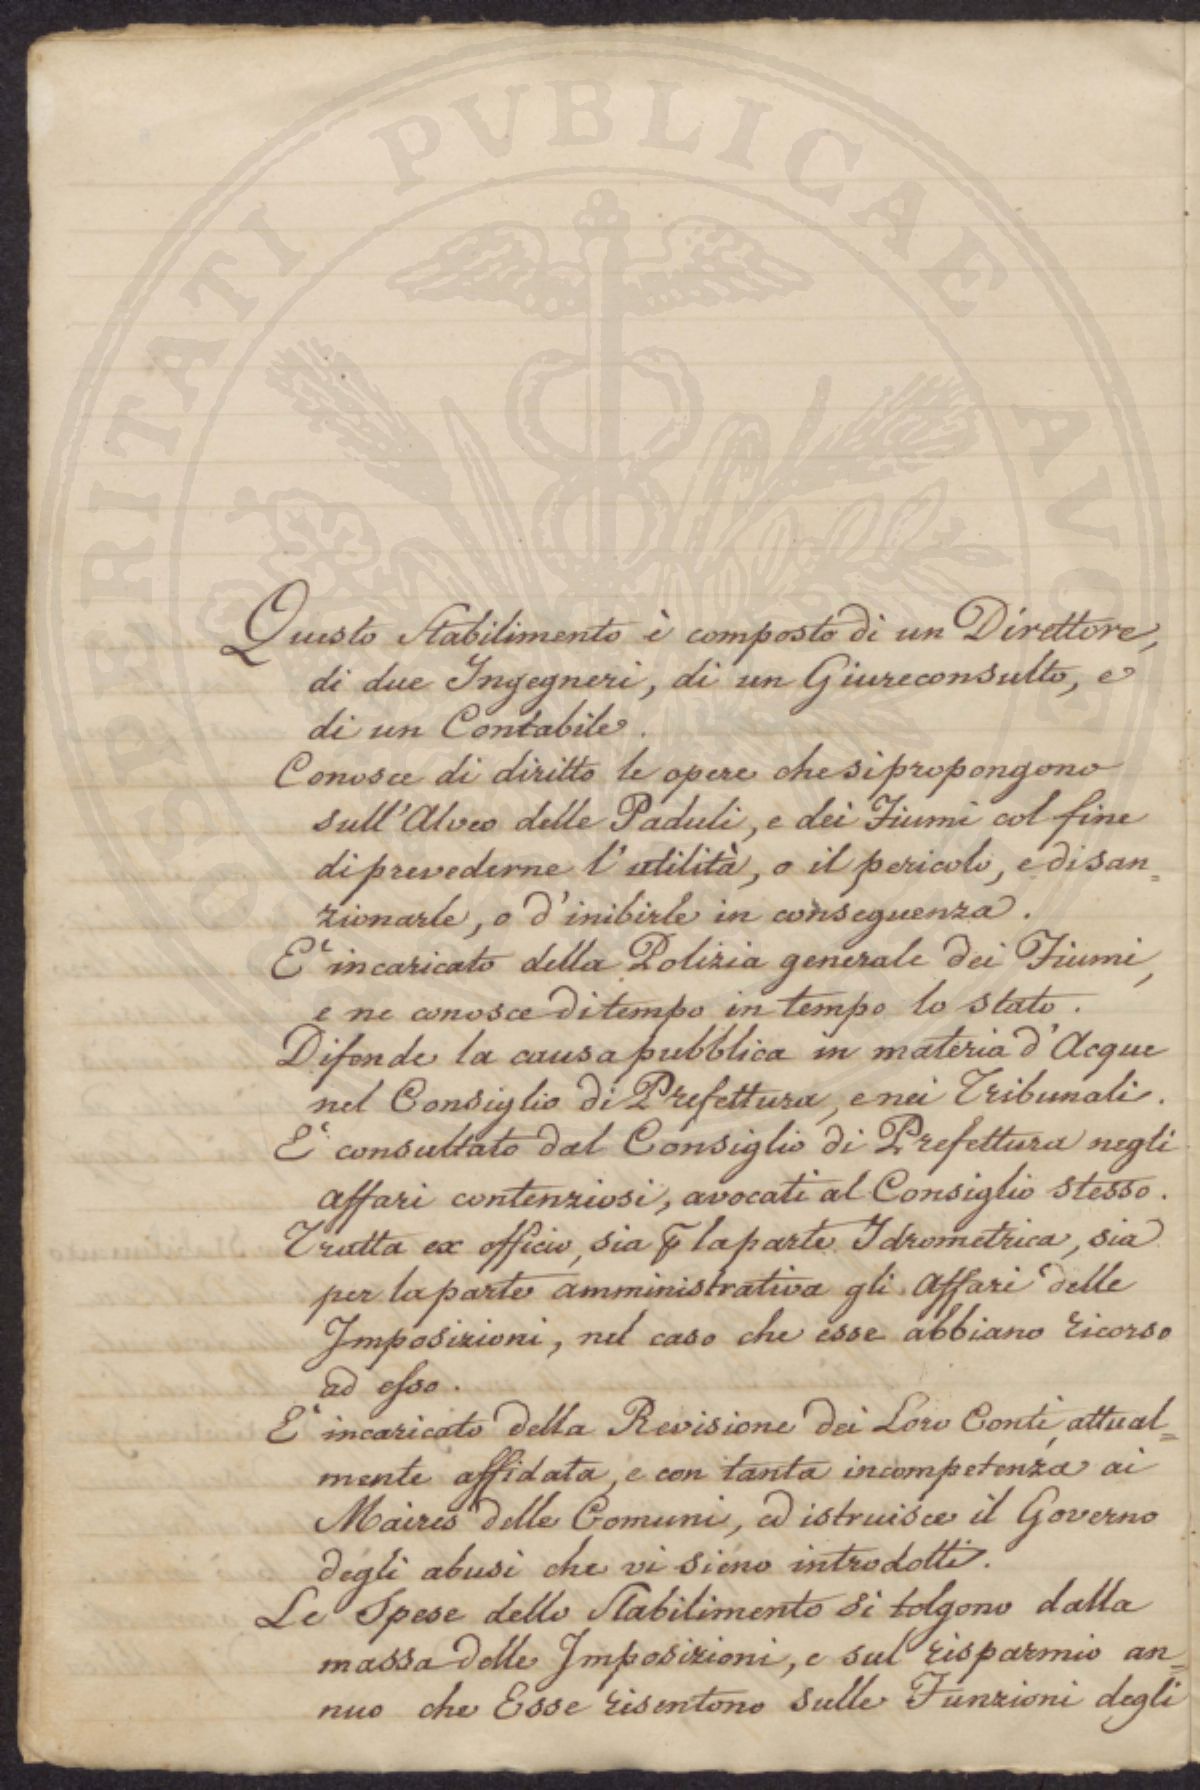 PROSPERITATI PVBLICAE AVGENDAE
Questo Stabilimento è composto di un Direttore,
di due Ingegneri, di un Giureconsulto, e
di un Contabile.
Conosce di diritto le opere che si propongono
sull'Alveo delle Paduli, e dei Fiumi col fine
di prevederne l'utilità, o il pericolo, e di san=
zionarle, o d'inibirle in conseguenza.
E' incaricato della Polizia generale dei Fiumi,
e ne conosce di tempo in tempo lo stato.
Difende la causa pubblica in materia d'Acque
nel Consiglio di Prefettura, e nei Tribunali.
E' consultato dal Consiglio di Prefettura negli
affari contenziosi, avocati al Consiglio stesso.
Tratta ex officio, sia p la parte Idrometrica, sia
per la parte amministrativa gli affari delle
Imposizioni, nel caso che esse abbiano ricorso
ad esso.
E' incaricato della Revisione dei Loro Conti, attual=
mente affidata, e con tanta incompetenza ai
Maires delle Comuni, ed istruisce il Governo
degli abusi che vi sieno introdotti.
Le Spese dello Stabilimento si tolgono dalla
massa delle Imposizioni, e sul risparmio an=
nuo che Esse risentono sulle Funzioni degli